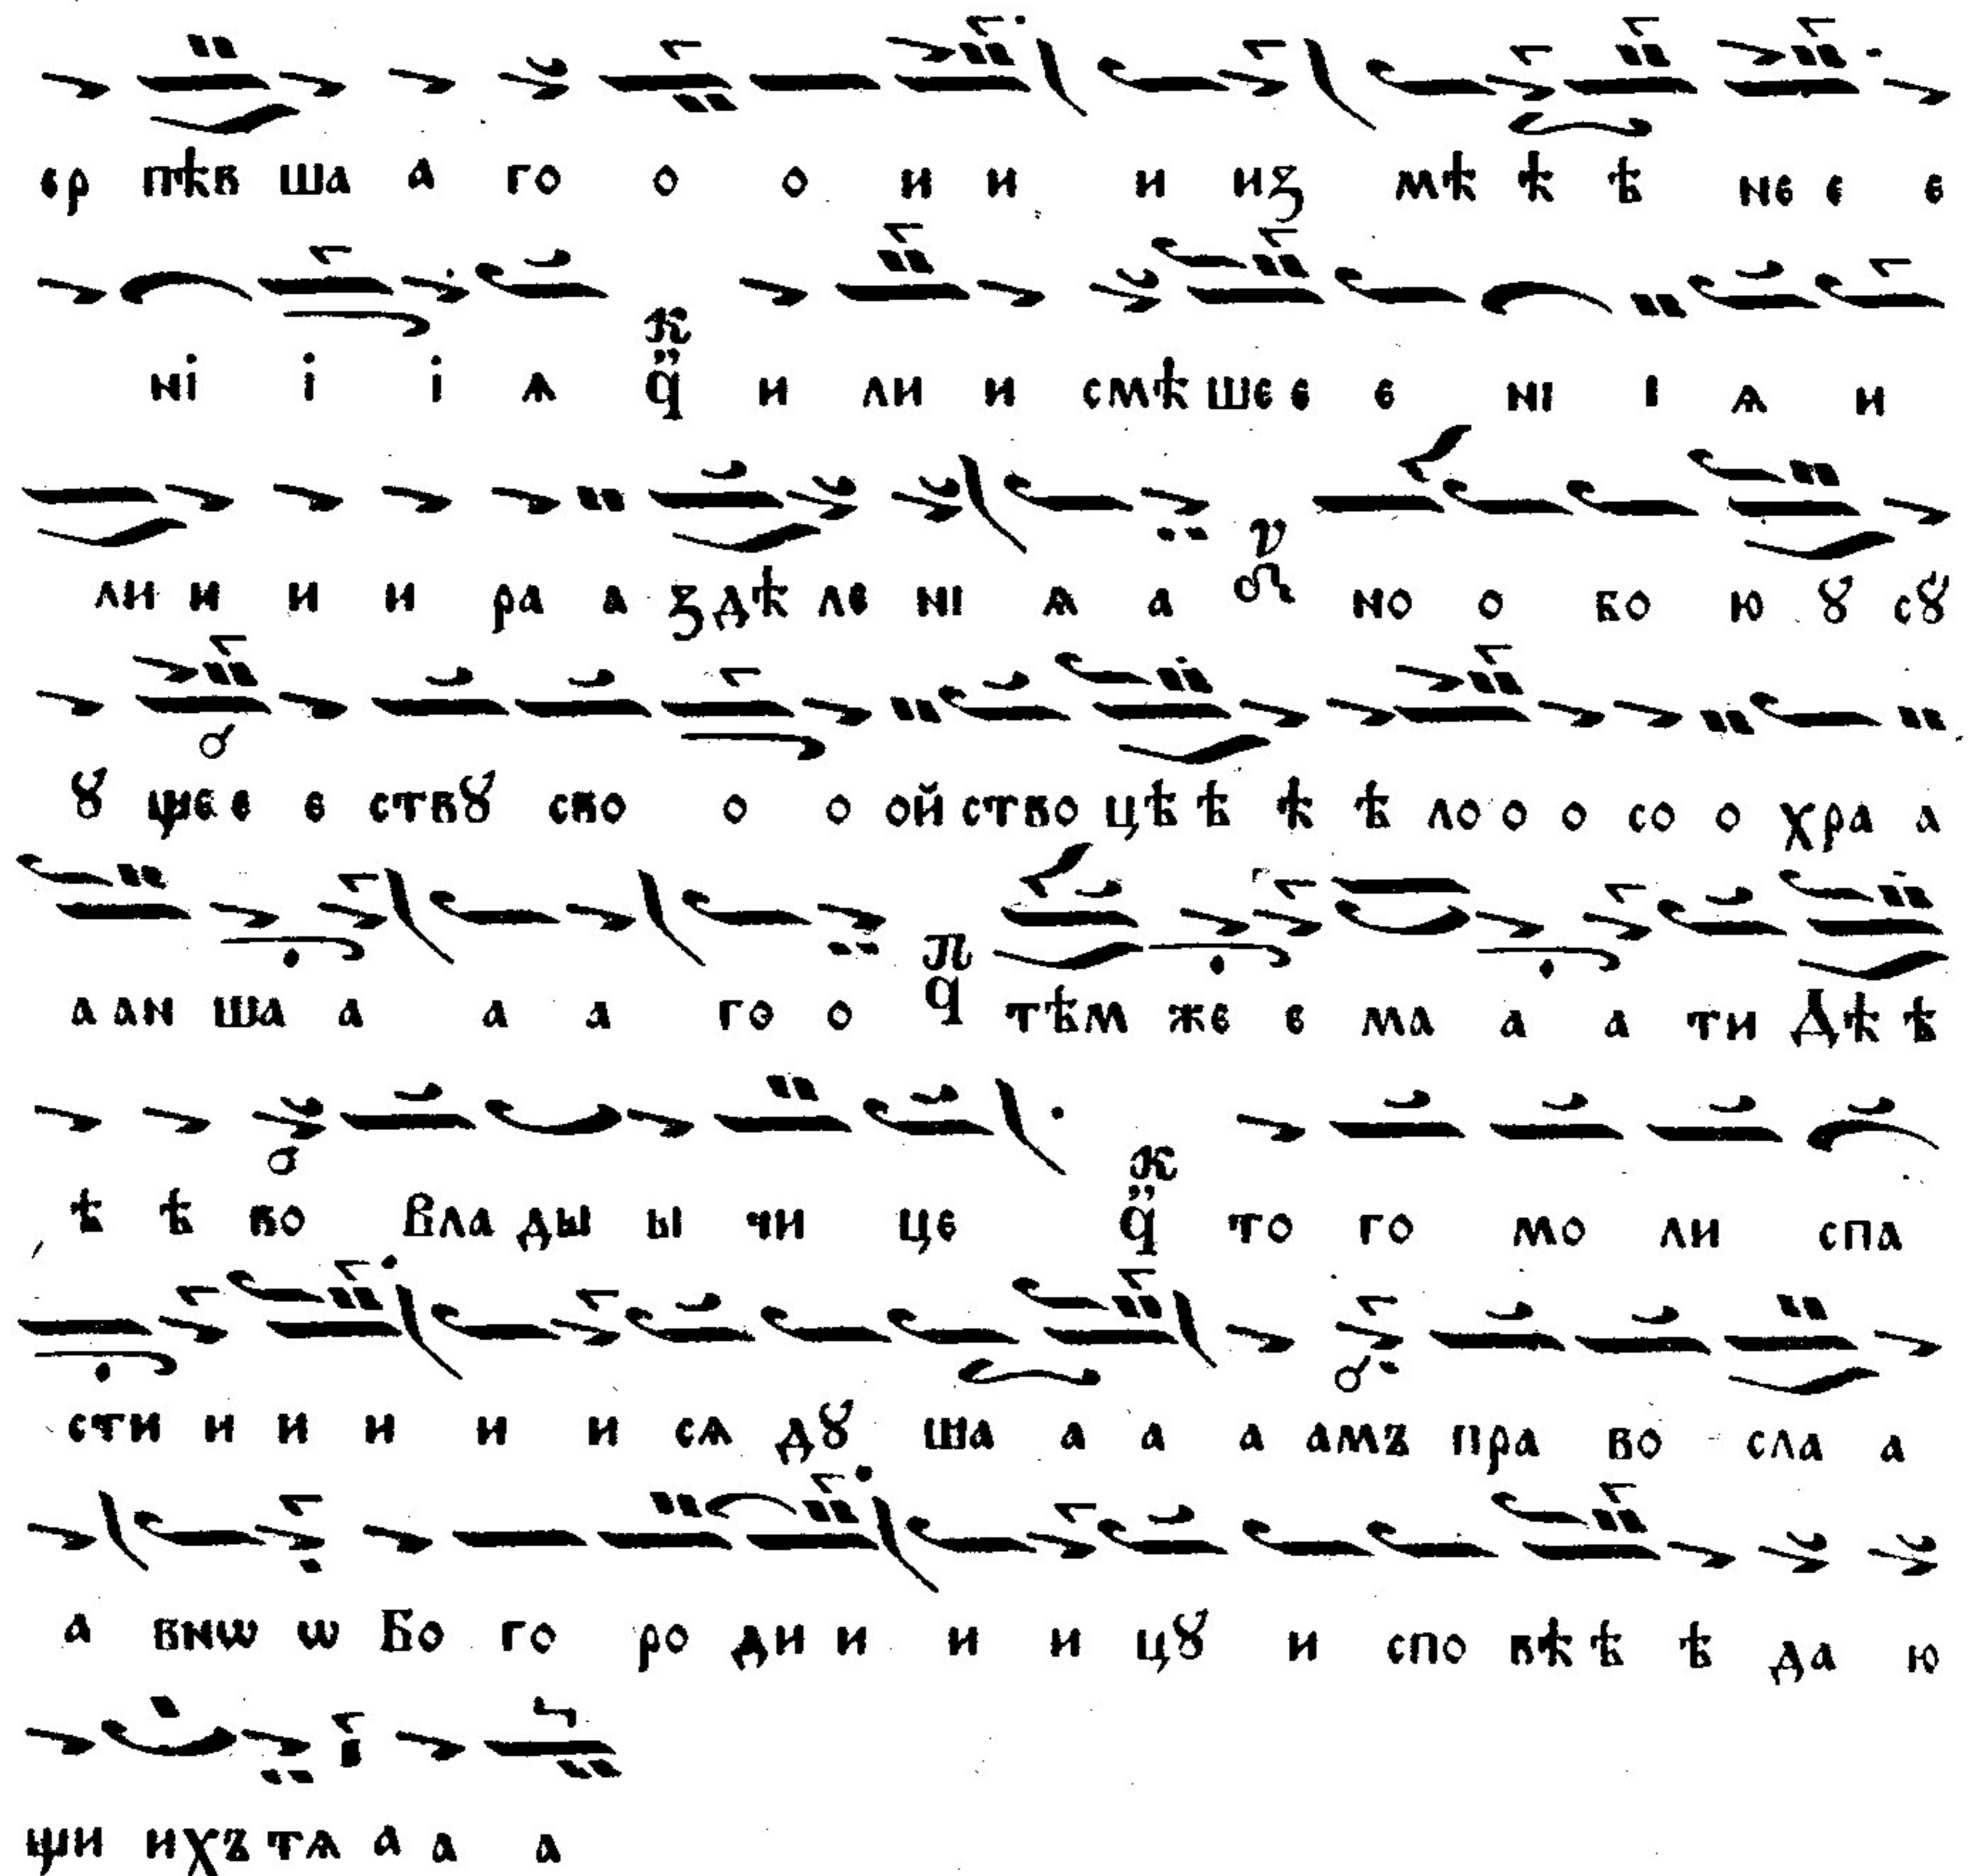 ер пѣв ша а го о о и и и из мѣ ѣ ѣ не е е
ні і і ѧ к q и ли и смѣ ше е е ні і ѧ и
ли и и и ра а здѣ ле ні ѧ а но о бо ю ꙋ сꙋ
ꙋ ще е е ствꙋ сво о о ой ство цѣ ѣ ѣ ѣ ло о о со о хра а
а ан ша а а а го о п q тѣм же е ма а а ти Дѣ ѣ
ѣ ѣ во Вла ды ы чи це к q то го мо ли спа
сти и и и и и сѧ дꙋ ша а а а амъ пра во сла а
а внѡ ѡ Бо го ро ди и и и цꙋ и спо вѣ ѣ ѣ да ю
щи ихъ тѧ а а а